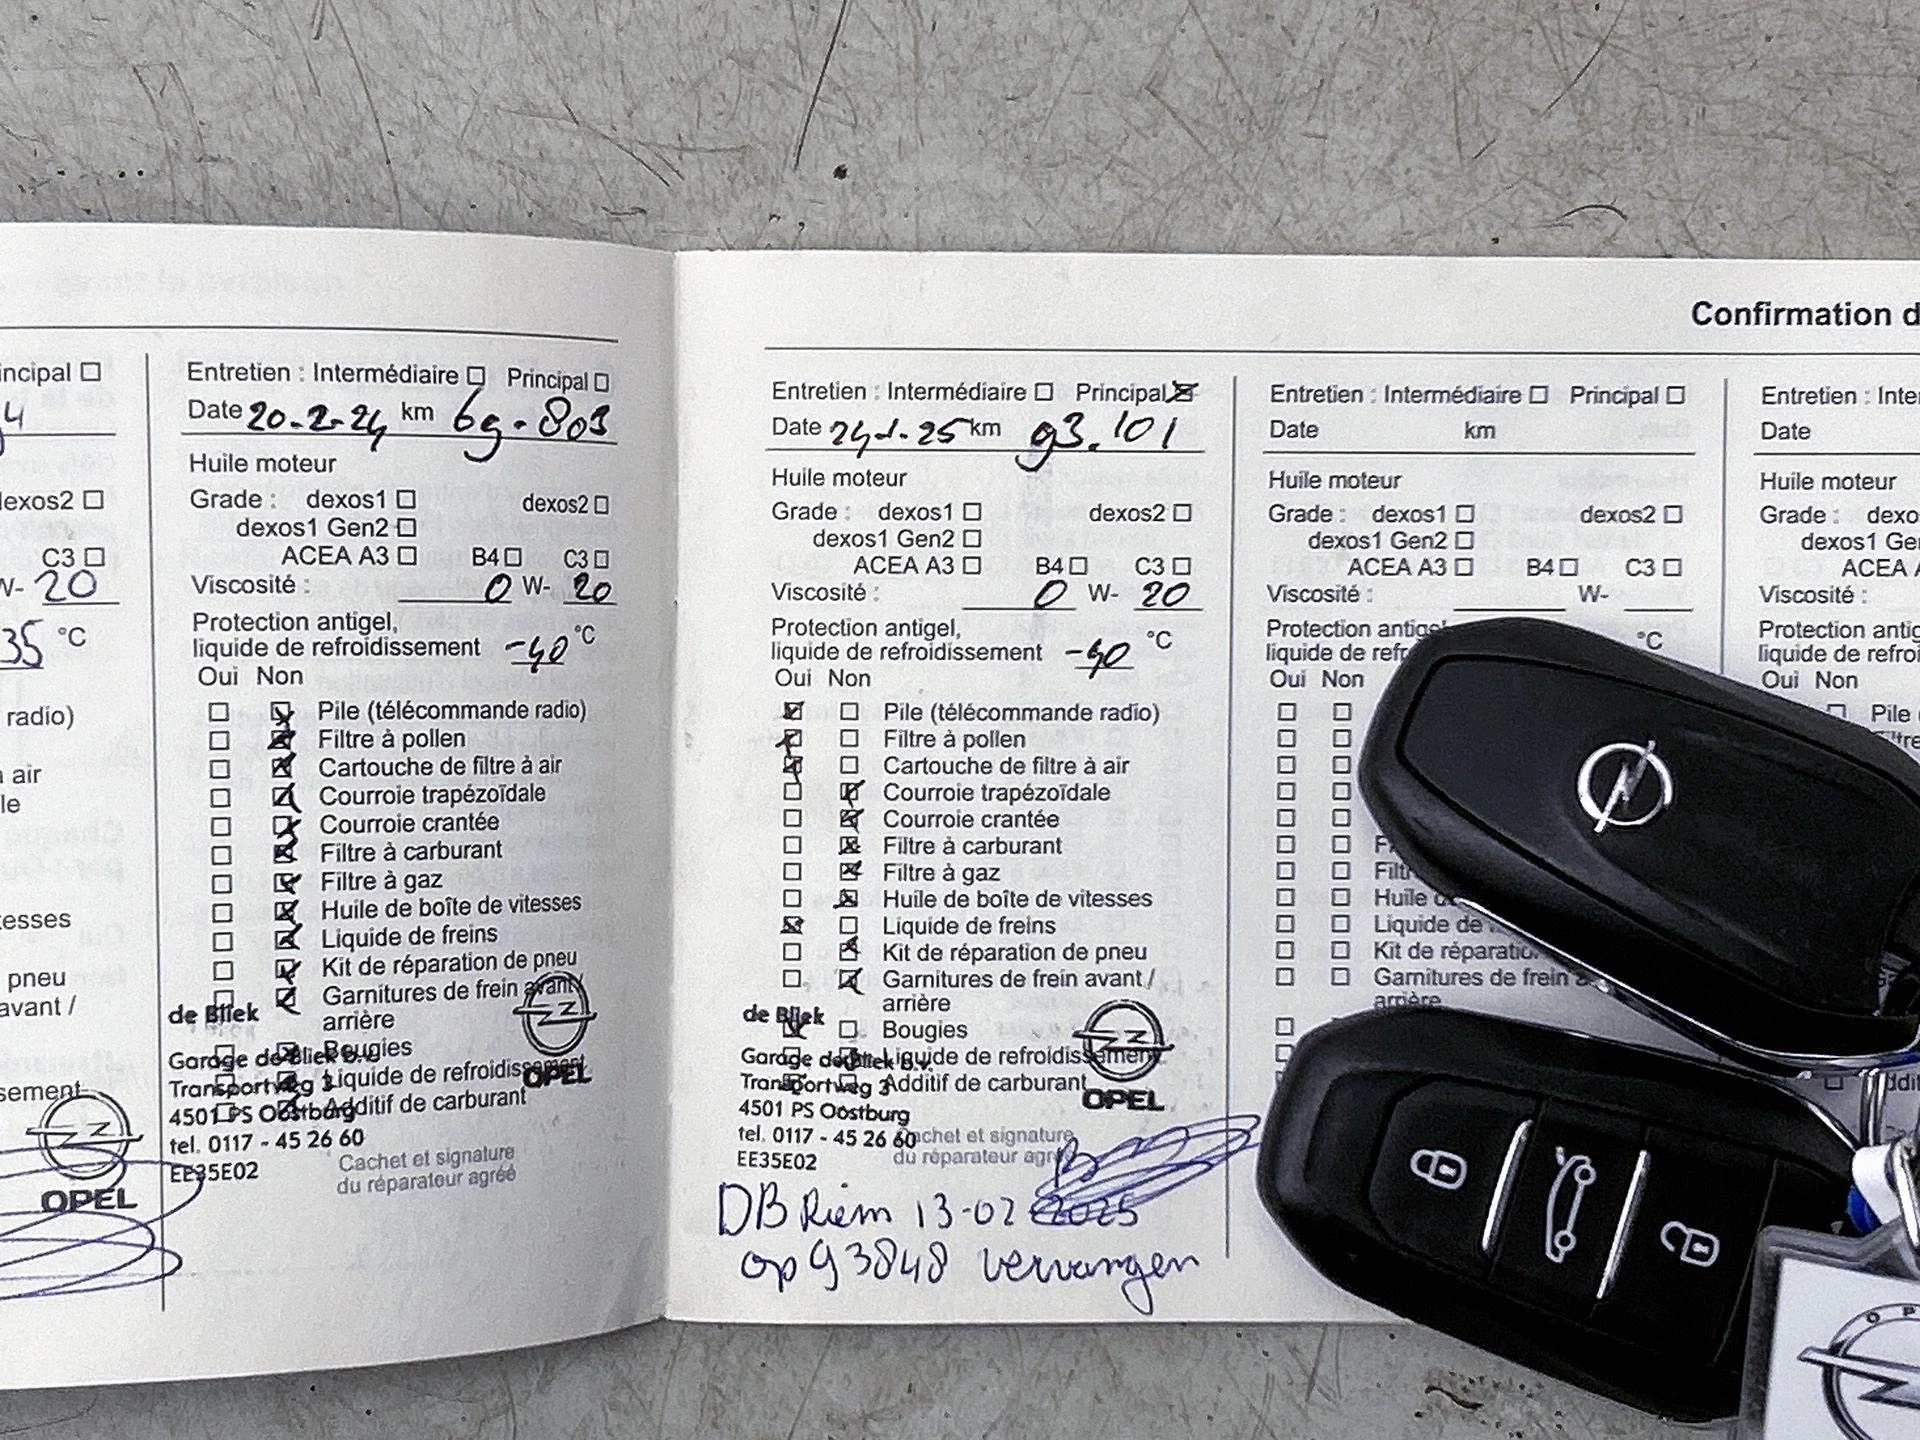 Confirmation d
ncipal
4
dexos2
C3
W- 20
35 °C
radio)
air
le
tesses
pneu
avant /
sement
OPEL
Entretien : Intermédiaire Principal
Date 20-2-24 km 69.803
Huile moteur
Grade : dexos1 dexos2
dexos1 Gen2
ACEA A3 B4 C3
Viscosité : 0 W- 20
Protection antigel,
liquide de refroidissement -40 °C
Oui Non
Pile (télécommande radio)
Filtre à pollen
Cartouche de filtre à air
Courroie trapézoïdale
Courroie crantée
Filtre à carburant
Filtre à gaz
Huile de boîte de vitesses
Liquide de freins
Kit de réparation de pneu
Garnitures de frein avant /
arrière
Bougies
Liquide de refroidissement
Additif de carburant
de Bliek
Garage de Bliek b.v.
Transportweg 3
4501 PS Oostburg
tel. 0117 - 45 26 60
EE35E02
OPEL
Cachet et signature
du réparateur agréé
Entretien : Intermédiaire Principal
Date 24-1-25 km 93.101
Huile moteur
Grade : dexos1 dexos2
dexos1 Gen2
ACEA A3 B4 C3
Viscosité : 0 W- 20
Protection antigel,
liquide de refroidissement -40 °C
Oui Non
Pile (télécommande radio)
Filtre à pollen
Cartouche de filtre à air
Courroie trapézoïdale
Courroie crantée
Filtre à carburant
Filtre à gaz
Huile de boîte de vitesses
Liquide de freins
Kit de réparation de pneu
Garnitures de frein avant /
arrière
Bougies
Liquide de refroidissement
Additif de carburant
de Bliek
Garage de Bliek b.v.
Transportweg 3
4501 PS Oostburg
tel. 0117 - 45 26 60
EE35E02
OPEL
Cachet et signature
du réparateur agréé
DB Riem 13-02 2025
op 93848 vervangen
Entretien : Intermédiaire Principal
Date km
Huile moteur
Grade : dexos1 dexos2
dexos1 Gen2
ACEA A3 B4 C3
Viscosité : W-
Protection antige
liquide de refr °C
Oui Non
F
Filtr
Huile d
Liquide de
Kit de réparatio
Garnitures de frein a
arrière
Entretien : Inte
Date
Huile moteur
Grade : dexo
dexos1 Ge
ACEA A
Viscosité :
Protection antig
liquide de refroi
Oui Non
Pile